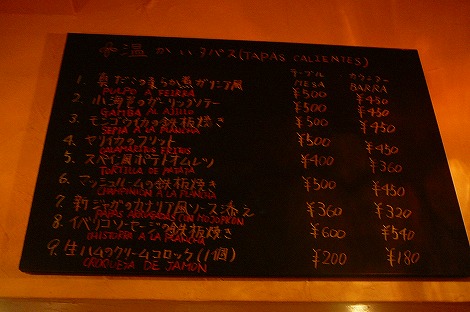 温かいタパス(TAPAS CALIENTES)
テーブル カウンター
MESA BARRA
1. 真だこのやわらか煮ガリシア風 ¥500 ¥450
PULPO A FEIRRA
2. 小海老のガーリックソテー ¥500 ¥450
GAMBA AL AJILLO
3. モンゴウイカの鉄板焼き ¥500 ¥450
SEPIA A LA PLANCHA
4. ヤリイカのフリット ¥500 ¥450
CALAMARES FRITOS
5. スペイン風ポテトオムレツ ¥400 ¥360
TORTILLA DE PATATA
6. マッシュルームの鉄板焼き ¥500 ¥450
A LA PLANCHA
7. 新ジャガのカナリア風ソース添え ¥360 ¥320
PAPAS ARRUGADAS CON MOJO PICON
8. イベリコソーセージの鉄板焼き ¥600 ¥540
CHISTORRA A LA PLANCHA
9. 生ハムのクリームコロッケ(1個) ¥200 ¥180
CROQUESA DE JAMON